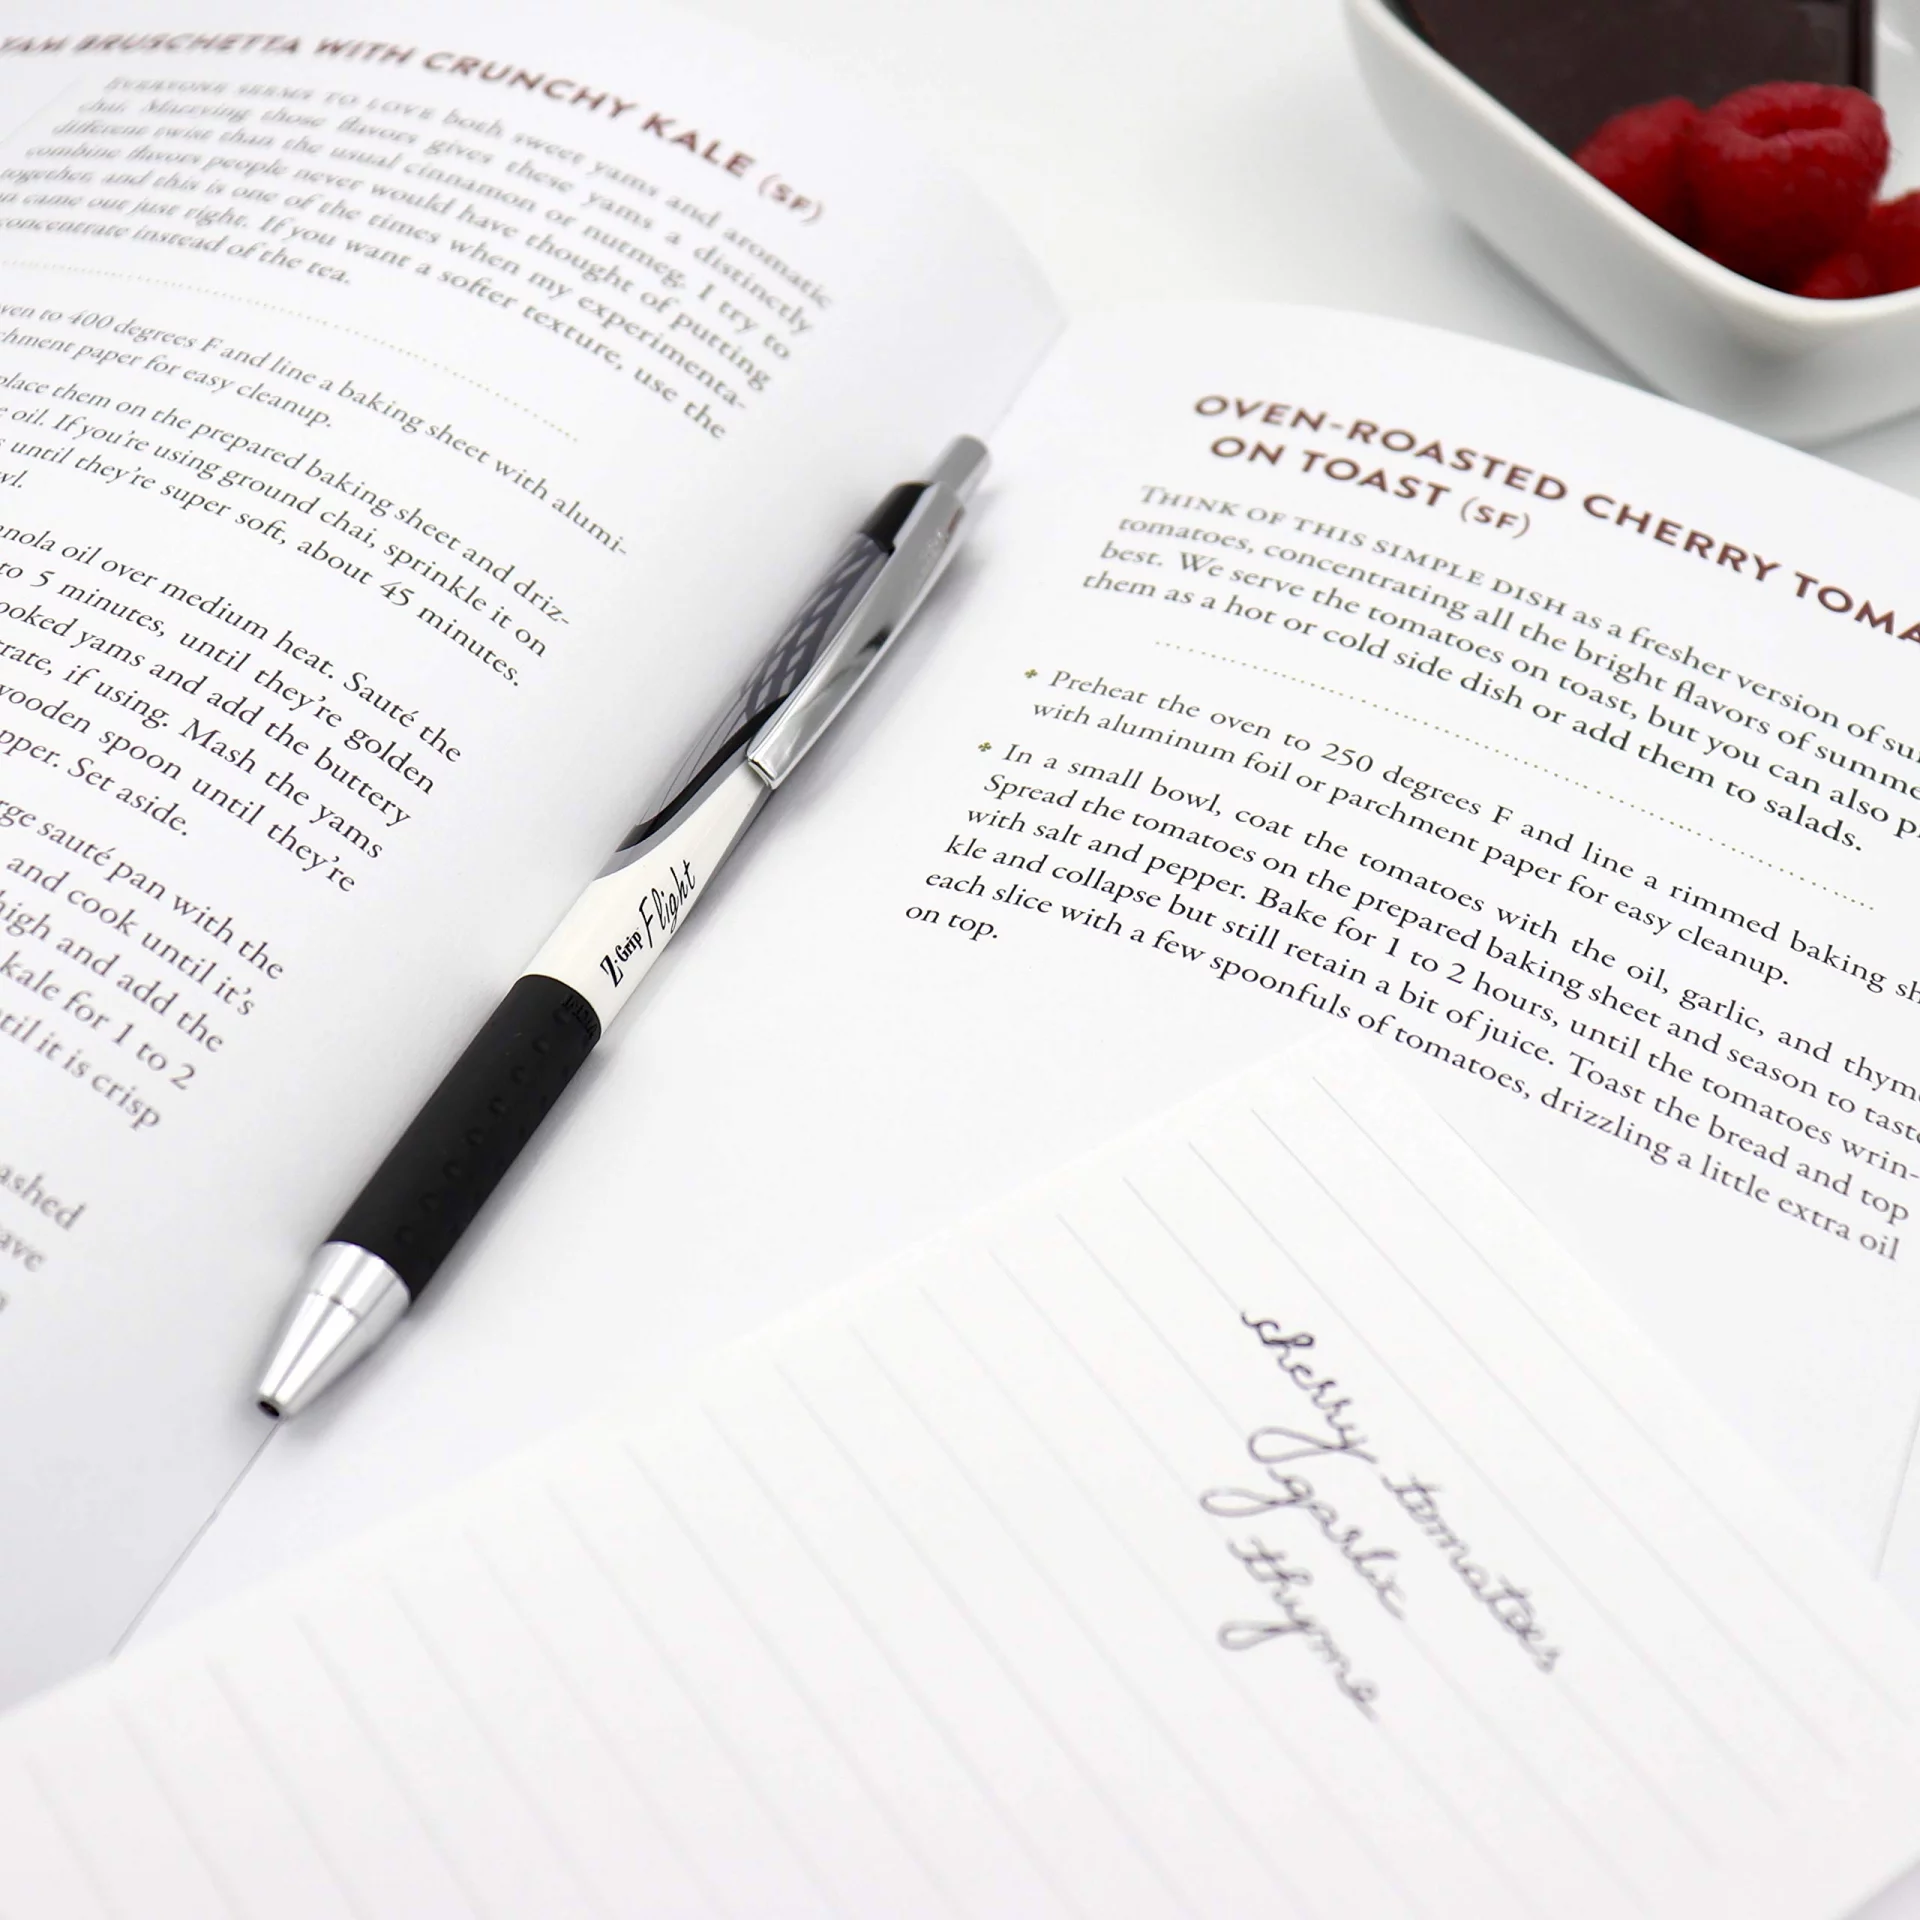 YAM BRUSCHETTA WITH CRUNCHY KALE (SF)
EVERYONE SEEMS TO LOVE both sweet yams and aromatic
chai. Marrying those flavors gives these yams a distinctly
different twist than the usual cinnamon or nutmeg. I try to
combine flavors people never would have thought of putting
together, and this is one of the times when my experimenta-
came out just right. If you want a softer texture, use the
concentrate instead of the tea.
to 400 degrees F and line a baking sheet with alumi-
paper for easy cleanup.
place them on the prepared baking sheet and driz-
oil. If you're using ground chai, sprinkle it on
until they're super soft, about 45 minutes.
oil over medium heat. Sauté the
to 5 minutes, until they're golden
yams and add the buttery
if using. Mash the yams
spoon until they're
Set aside.
sauté pan with the
and cook until it's
high and add the
kale for 1 to 2
it is crisp
OVEN-ROASTED CHERRY
ON TOAST (SF)
THINK OF THIS SIMPLE DISH as a fresher version of
tomatoes, concentrating all the bright flavors of
best. We serve the tomatoes on toast, but you can also
them as a hot or cold side dish or add them to salads.
Preheat the oven to 250 degrees F and line a rimmed baking
with aluminum foil or parchment paper for easy cleanup.
In a small bowl, coat the tomatoes with the oil, garlic, and
Spread the tomatoes on the prepared baking sheet and season to
with salt and pepper. Bake for 1 to 2 hours, until the tomatoes wrin-
kle and collapse but still retain a bit of juice. Toast the bread and top
each slice with a few spoonfuls of tomatoes, drizzling a little extra oil
on top.
Z-Grip Flight
cherry tomatoes
garlic
thyme